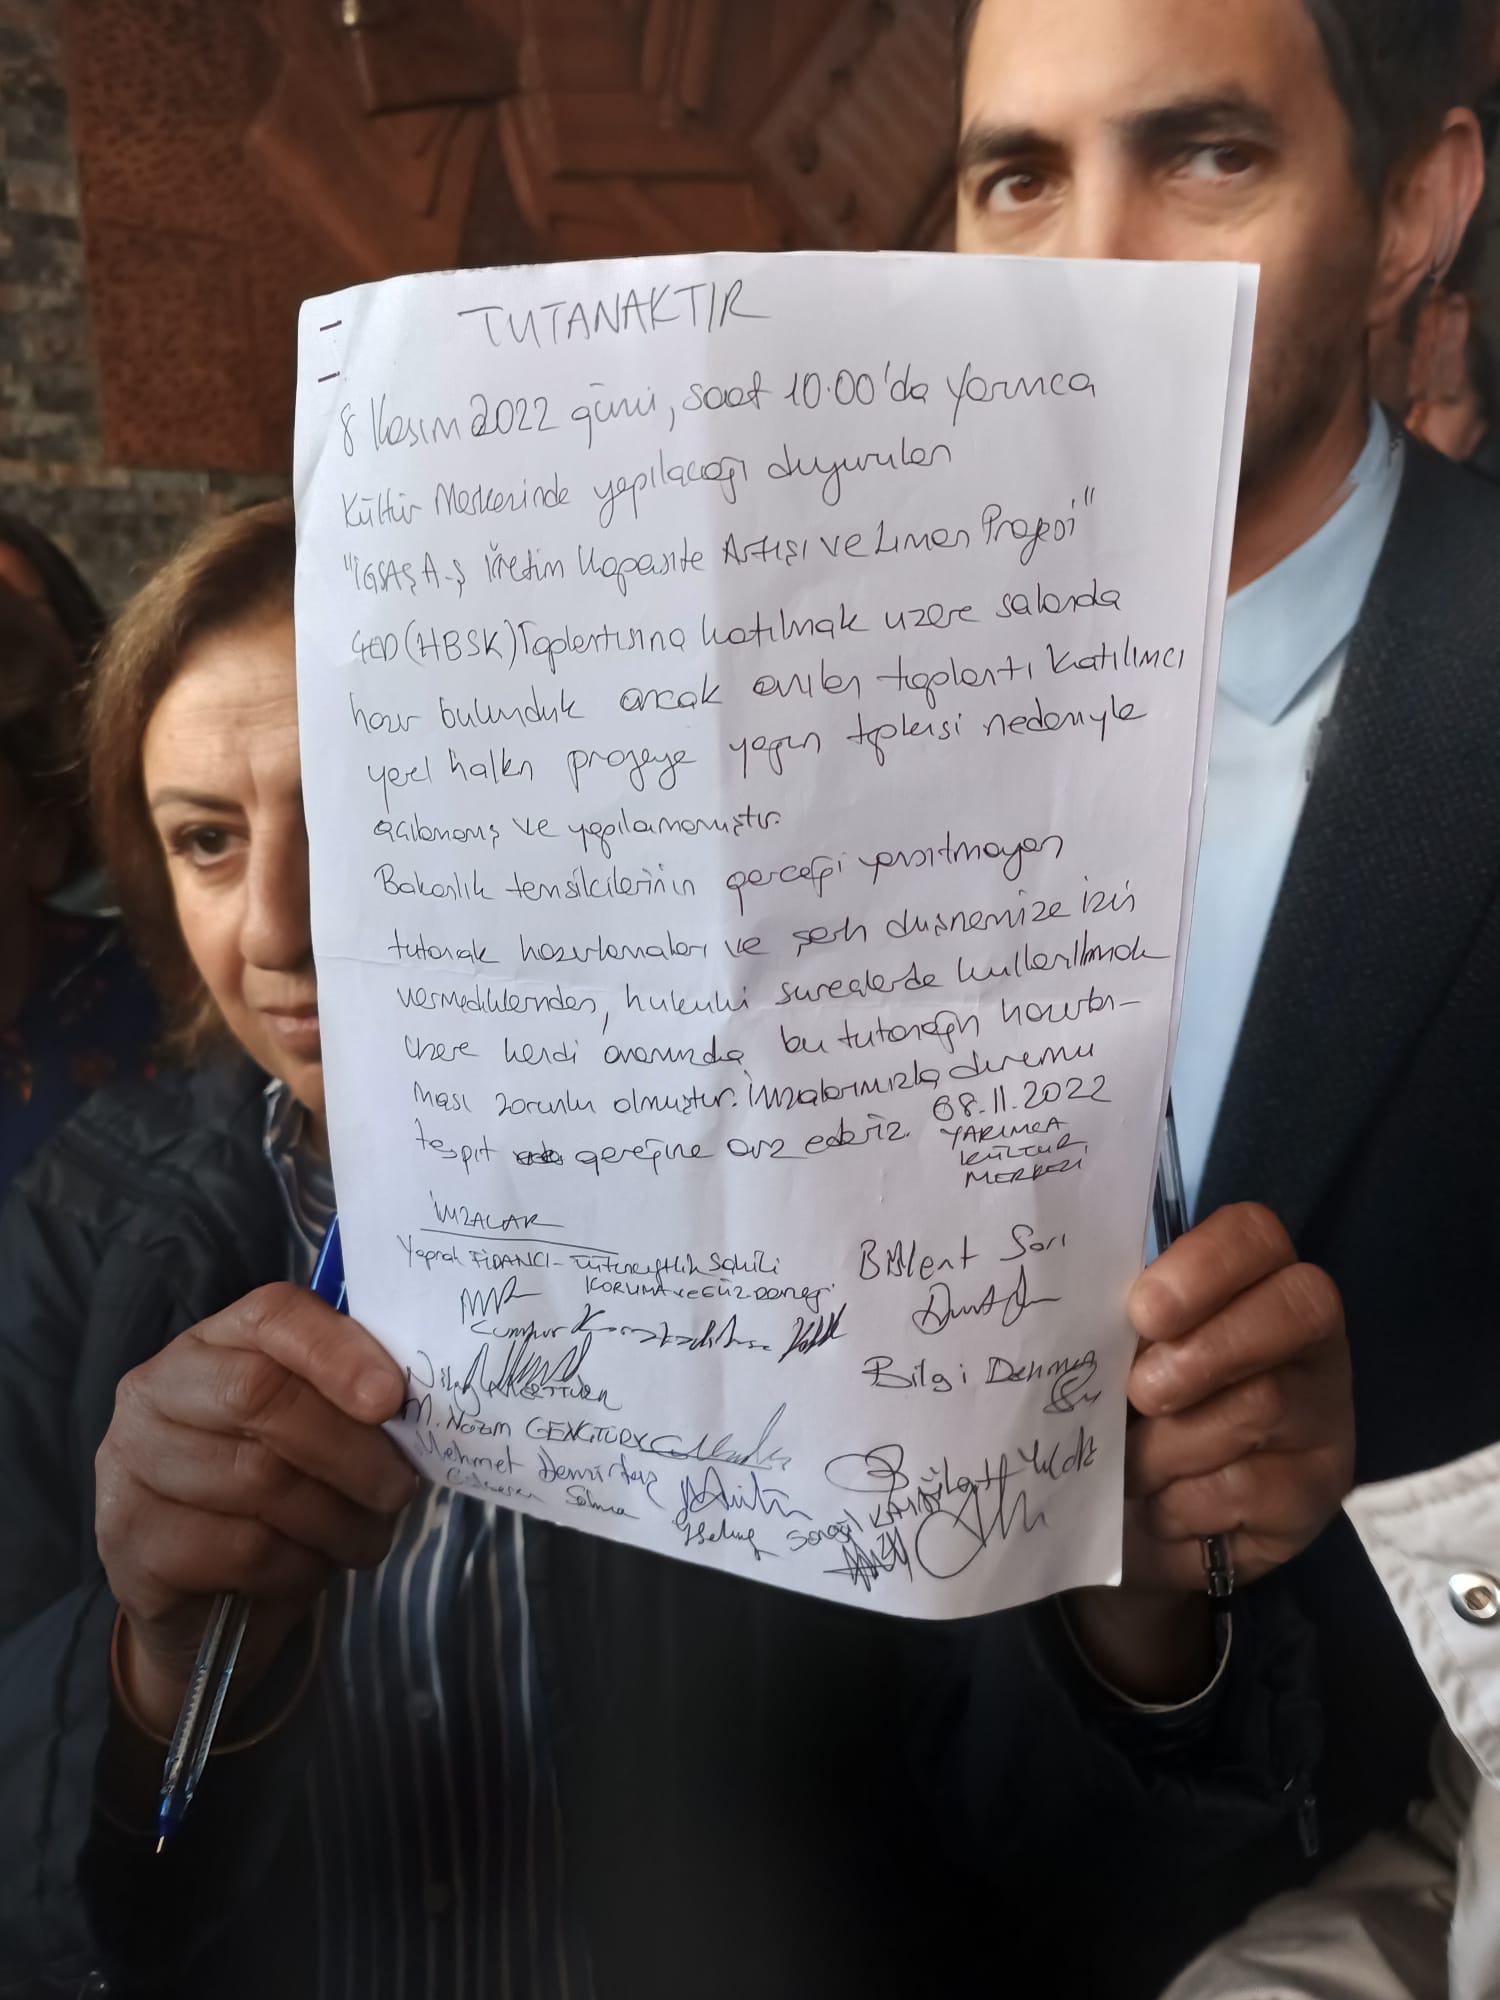 TUTANAKTIR
8 Kasım 2022 günü, saat 10.00'da Yarımca
Kültür Merkezinde yapılacağı duyurulan
"İGSAŞ A.Ş Üretim Kapasite Artışı ve Liman Projesi"
ÇED (HBSK) Toplantısına katılmak üzere salonda
hazır bulunduk ancak anılan toplantı katılımcı
yerel halkın projeye yoğun tepkisi nedeniyle
açılamamış ve yapılamamıştır.
Bakanlık temsilcilerinin gerçeği yansıtmayan
tutanak hazırlamaları ve şerh düşmemize izin
vermediklerinden, hukuki süreçlerde kullanılmak
üzere kendi aramızda bu tutanağın hazırlan-
ması zorunlu olmuştur. İmzalarımızla durumu
tespit gereğine arz ederiz. 08.11.2022
YARIMCA
KÜLTÜR
MERKEZİ
İMZALAR
Yaprak FİDANCI - Tütünçiftlik Sahili
KORUMA ve GÜZ Derneği
Bülent Sarı
Bilgi Dönmez
M. Nazım GENÇTÜRK
Mehmet Demirtaş
Selma